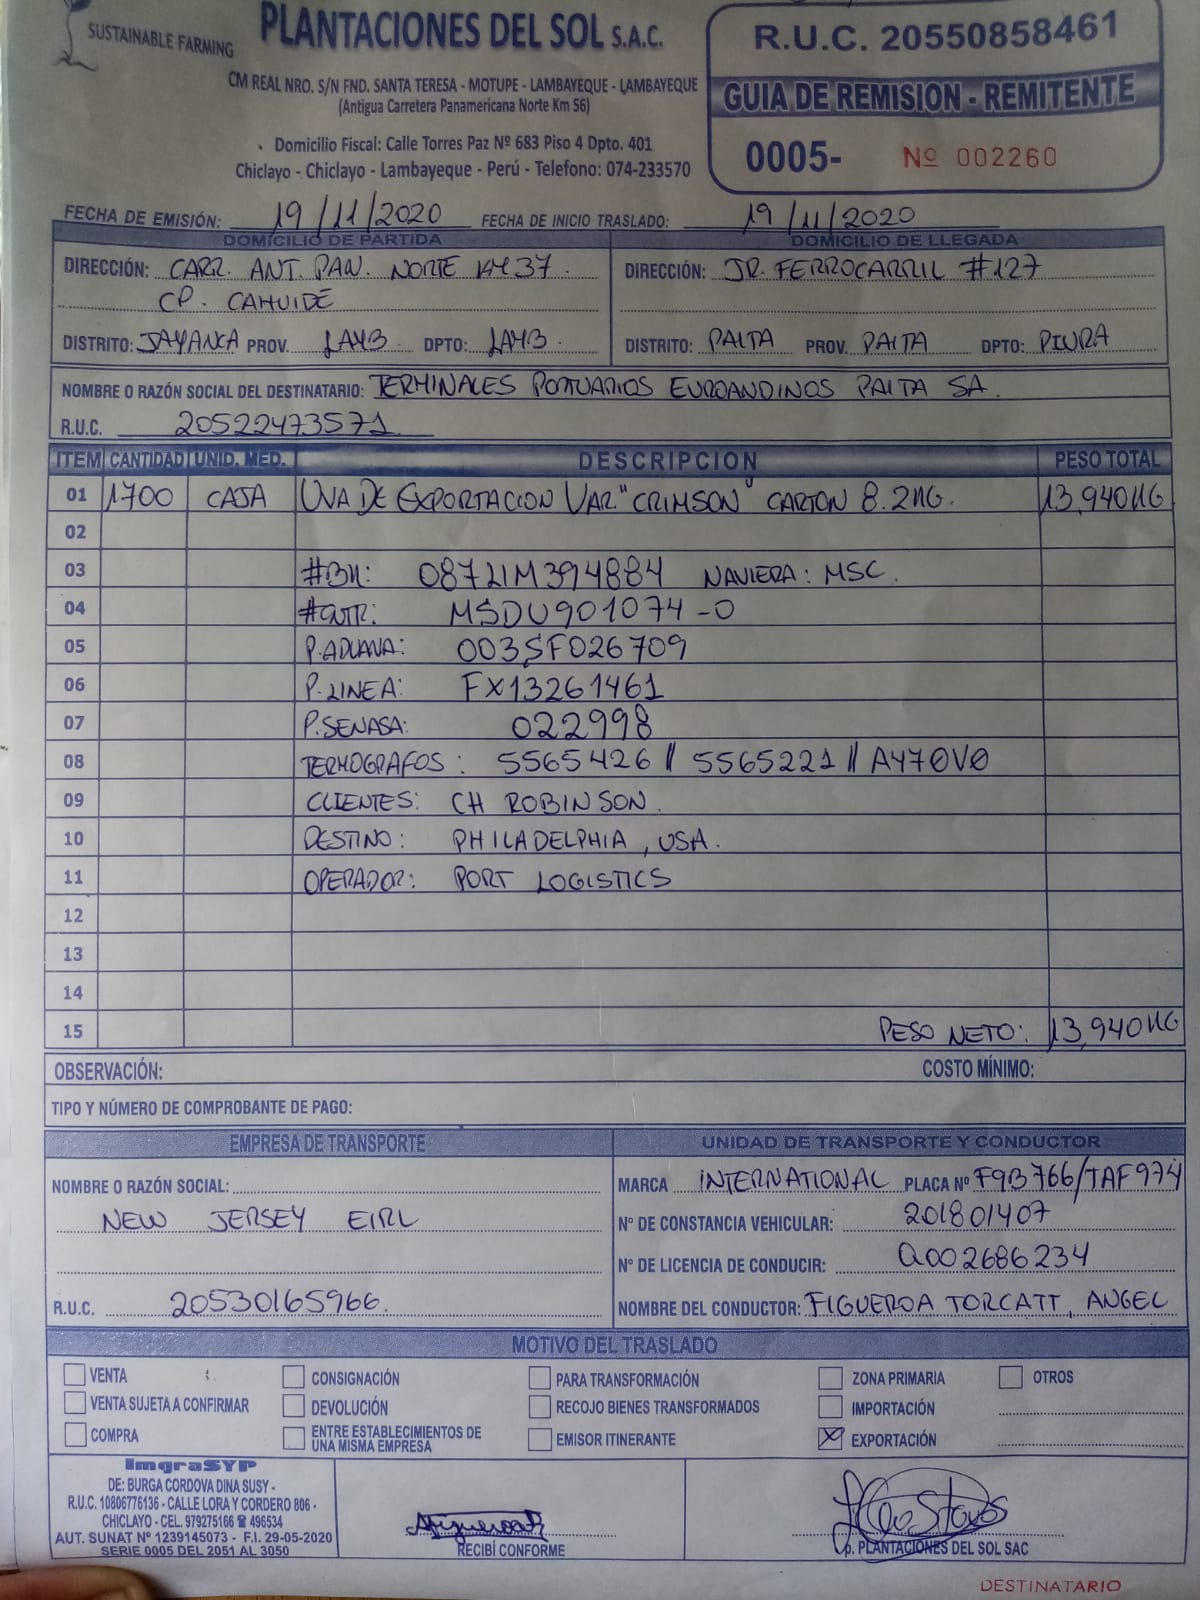 SUSTAINABLE FARMING
PLANTACIONES DEL SOL S.A.C.
CM REAL NRO. S/N FND. SANTA TERESA - MOTUPE - LAMBAYEQUE - LAMBAYEQUE
(Antigua Carretera Panamericana Norte Km 56)
Domicilio Fiscal: Calle Torres Paz Nº 683 Piso 4 Dpto. 401
Chiclayo - Chiclayo - Lambayeque - Perú - Telefono: 074-233570
R.U.C. 20550858461
GUIA DE REMISION - REMITENTE
0005- Nº 002260
FECHA DE EMISIÓN: 19/11/2020 FECHA DE INICIO TRASLADO: 19/11/2020
DOMICILIO DE PARTIDA
DIRECCIÓN: CARR. ANT. PAN. NORTE KM 37
CP. CAHUIDE
DISTRITO: JAYANCA PROV. LAMB. DPTO: LAMB.
DOMICILIO DE LLEGADA
DIRECCIÓN: JR. FERROCARRIL #127
DISTRITO: PAITA PROV. PAITA DPTO: PIURA
NOMBRE O RAZÓN SOCIAL DEL DESTINATARIO: TERMINALES POTUARIOS EUROANDINOS PAITA SA.
R.U.C. 20522473571
ITEM CANTIDAD UNID. MED. DESCRIPCION PESO TOTAL
01 1700 CAJA UVA DE EXPORTACION VAR "CRIMSON" CARTON 8.2KG. 13,940KG
02
03 #BK: 087LIM394884 NAVIERA: MSC.
04 #CNTR: MSDU901074-0
05 P.ADUANA: 003SF026709
06 P.LINEA: FX13261461
07 P.SENASA: 022998
08 TERMOGRAFOS: 5565426 // 5565221 // A470V0
09 CLIENTES: CH ROBINSON.
10 DESTINO: PHILADELPHIA, USA.
11 OPERADOR: PORT LOGISTICS
12
13
14
15 PESO NETO: 13,940KG
OBSERVACIÓN: COSTO MÍNIMO:
TIPO Y NÚMERO DE COMPROBANTE DE PAGO:
EMPRESA DE TRANSPORTE
NOMBRE O RAZÓN SOCIAL:
NEW JERSEY EIRL
R.U.C. 20530165966.
UNIDAD DE TRANSPORTE Y CONDUCTOR
MARCA INTERNATIONAL PLACA Nº F9B766/TAF974
Nº DE CONSTANCIA VEHICULAR: 201801407
Nº DE LICENCIA DE CONDUCIR: Q002686234
NOMBRE DEL CONDUCTOR: FIGUEROA TORCATT, ANGEL
MOTIVO DEL TRASLADO
VENTA CONSIGNACIÓN PARA TRANSFORMACIÓN ZONA PRIMARIA OTROS
VENTA SUJETA A CONFIRMAR DEVOLUCIÓN RECOJO BIENES TRANSFORMADOS IMPORTACIÓN
COMPRA ENTRE ESTABLECIMIENTOS DE UNA MISMA EMPRESA EMISOR ITINERANTE EXPORTACIÓN
ImgraSYP
DE: BURGA CORDOVA DINA SUSY -
R.U.C. 10806776136 - CALLE LORA Y CORDERO 806 -
CHICLAYO - CEL. 979275166 ☎ 496534
AUT. SUNAT Nº 1239145073 - F.I. 29-05-2020
SERIE 0005 DEL 2051 AL 3050
RECIBÍ CONFORME
p. PLANTACIONES DEL SOL SAC
DESTINATARIO